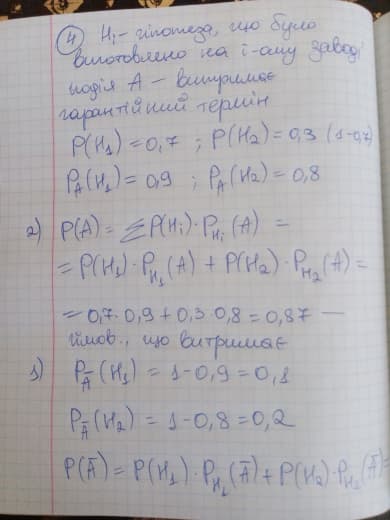 4 Hᵢ - гіпотеза, що було
виготовлено на i-ому заводі
подія A - витримає
гарантійний термін
P(H₁) = 0,7 ; P(H₂) = 0,3 (1-0,7)
P_A(H₁) = 0,9 ; P_A(H₂) = 0,8
2) P(A) = ΣP(Hᵢ)·P_Hᵢ(A) =
= P(H₁)·P_H₁(A) + P(H₂)·P_H₂(A) =
= 0,7·0,9 + 0,3·0,8 = 0,87 —
ймов., що витримає
1) P_Ā(H₁) = 1-0,9 = 0,1
P_Ā(H₂) = 1-0,8 = 0,2
P(Ā) = P(H₁)·P_H₁(Ā) + P(H₂)·P_H₂(Ā) =